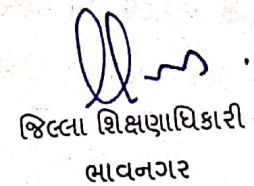 જિલ્લા શિક્ષણાધિકારી
ભાવનગર